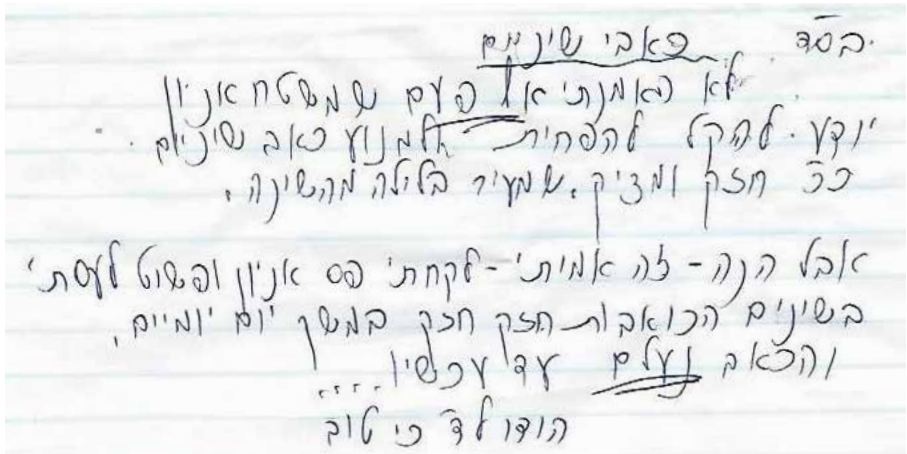 בס״ד. כאבי שיניים
לא האמנתי אף פעם שמשטח אניון
יודע. להקל להפחית ולמנוע כאב שיניים.
כ״כ חזק ומציק. שמעיר בלילה מהשינה.
אבל הנה - זה אמיתי - לקחתי פס אניון ופשוט לעסתי
בשינים הכואבות חזק חזק במשך יום יומיים,
והכאב נעלם עד עכשיו....
הודו לד׳ כי טוב